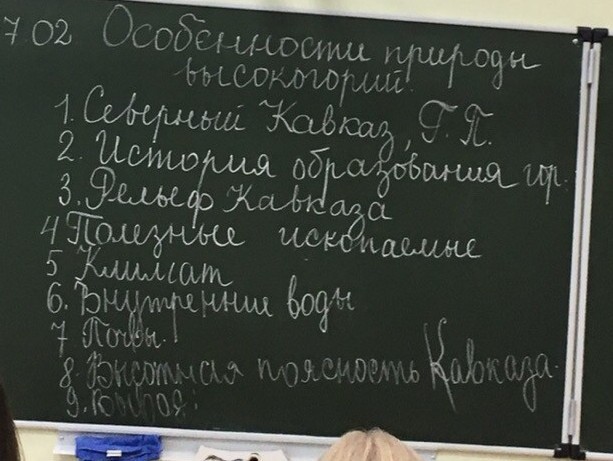 7.02 Особенности природы
высокогорий.
1. Северный Кавказ, Г.П.
2. История образования гор.
3. Рельеф Кавказа
4 Полезные ископаемые
5 Климат
6. Внутренние воды
7 Почвы.
8. Высотная поясность Кавказа.
9. Вывод: